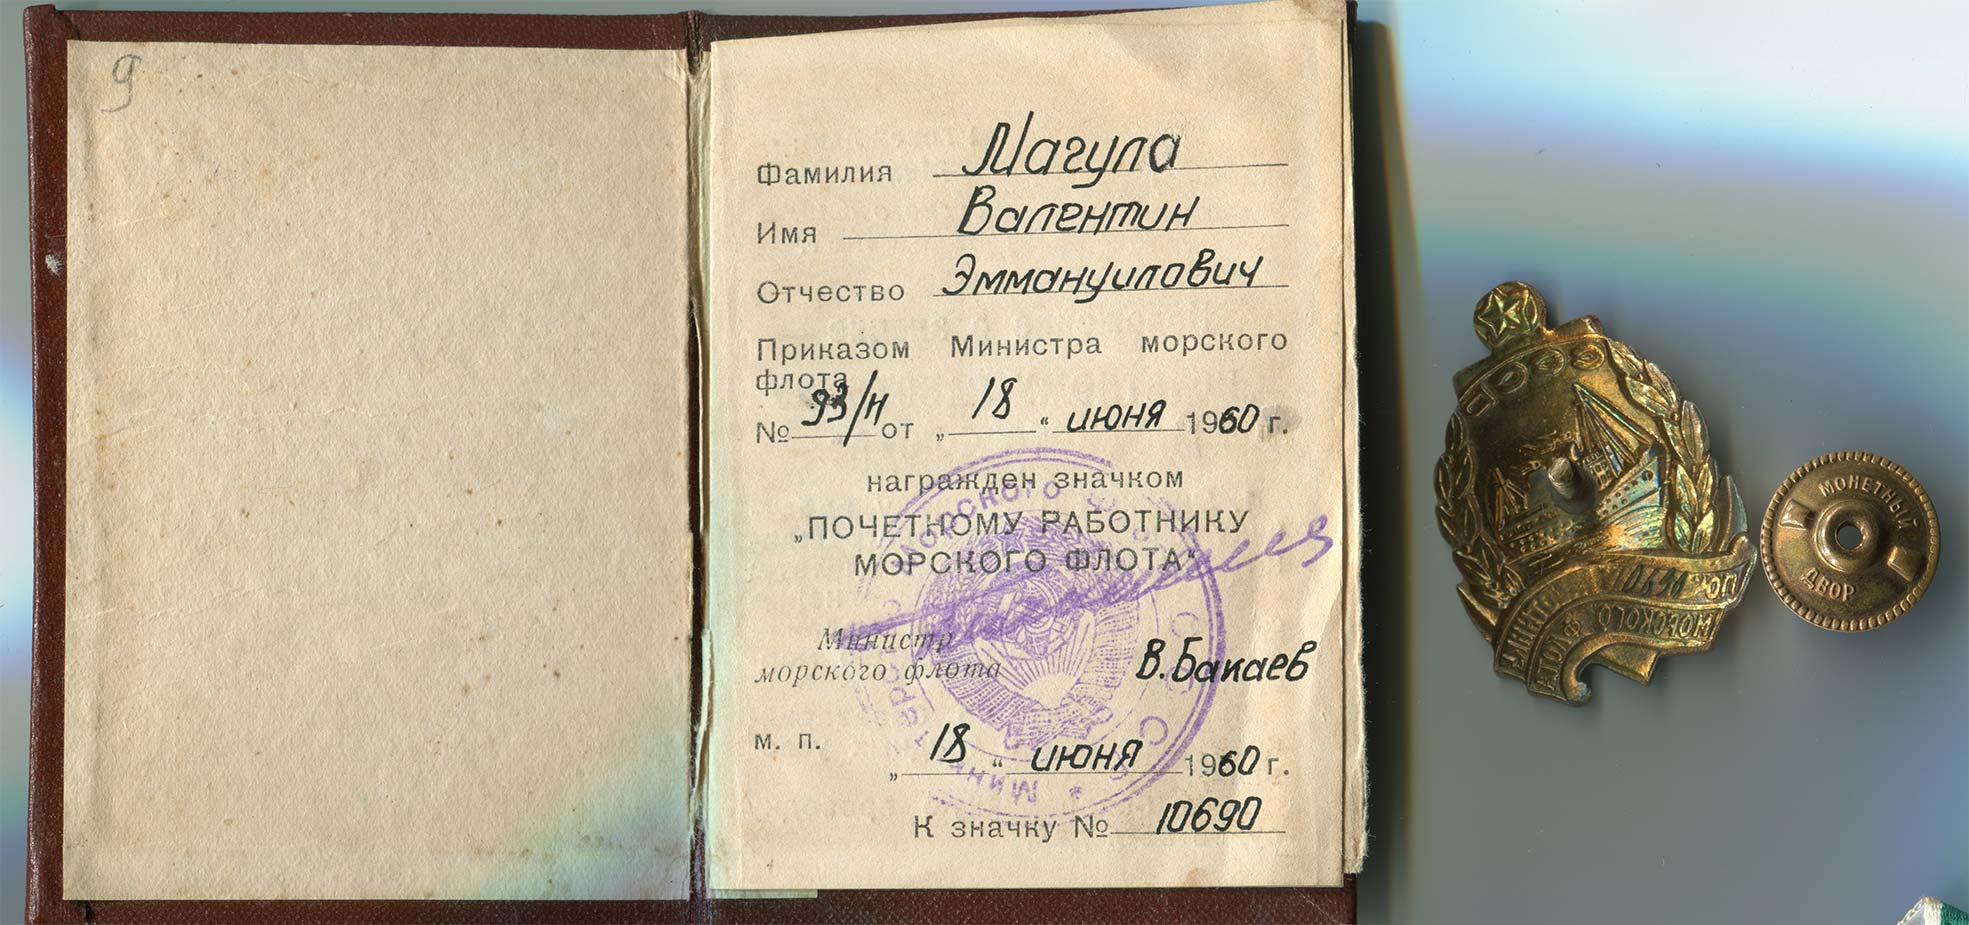 9
Фамилия Магула
Имя Валентин
Отчество Эммануилович
Приказом Министра морского
флота
№ 93/н от „18“ июня 1960 г.
награжден значком
„ПОЧЕТНОМУ РАБОТНИКУ
МОРСКОГО ФЛОТА“
Министр
морского флота В. Бакаев
м. п.
„18“ июня 1960 г.
К значку № 10690
Министерство Морского Флота СССР
МОНЕТНЫЙ
ДВОР